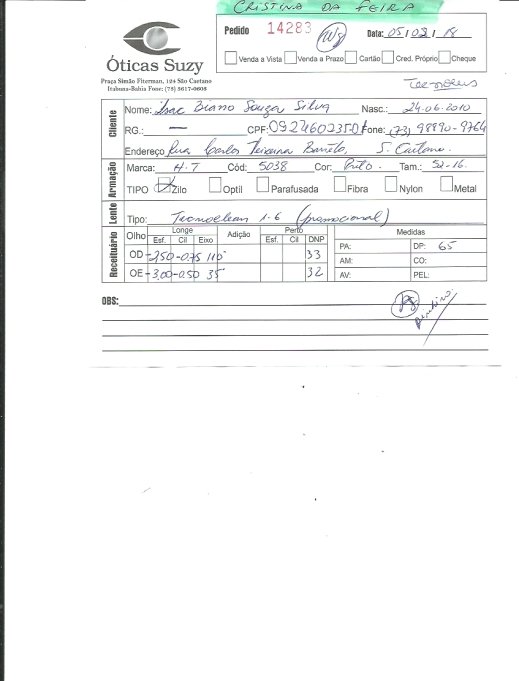 CRISTINA DA FEIRA
Pedido 14283 Data: 05/02/18
Venda a Vista Venda a Prazo Cartão Créd. Próprio Cheque
Óticas Suzy
Praça Simão Fiterman, 124 São Caetano
Itabuna-Bahia Fone: (73) 3617-0608
Cliente
Nome: Isac Souza Silva Nasc.: 24-06-2010
RG.: — CPF: Fone: (73) 98890-9764
Endereço Rua Carlos Teixeira S. Caetano.
Armação
Marca: H-7 Cód: 5038 Cor: Preto. Tam.: 52-16.
TIPO Zilo Optil Parafusada Fibra Nylon Metal
Lente
Tipo: Tecnoclean 1.6 (promocional)
Receituário
Olho Longe Adição Perto DNP Medidas
Esf. Cil Eixo Esf. Cil
PA: DP: 65
OD -2,50 -0,75 110° 33
AM: CO:
OE -3,00 -0,50 35° 32
AV: PEL:
OBS:
Pg
dinheiro